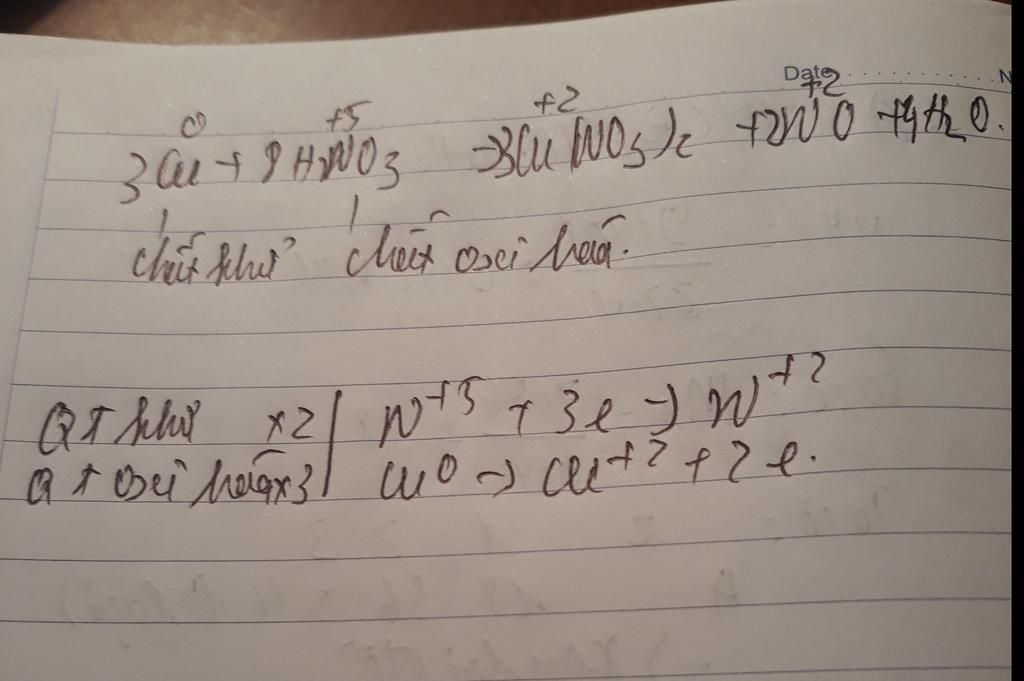 Date +2 N
0 +5 +2
3Cu + 8HNO3 → 3Cu(NO3)2 + 2NO + 4H2O.
chất khử chất oxi hoá.
QT khử x2 | N+5 + 3e → N+2
QT oxi hoá x3 | Cu0 → Cu+2 + 2e.